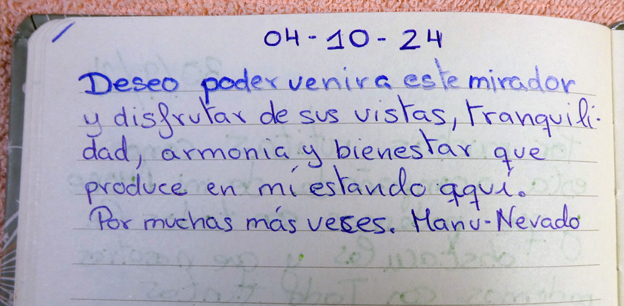 04-10-24
Deseo poder venir a este mirador
y disfrutar de sus vistas, tranquili-
dad, armonia y bienestar que
produce en mí estando aquí.
Por muchas más veces. Manu-Nevado